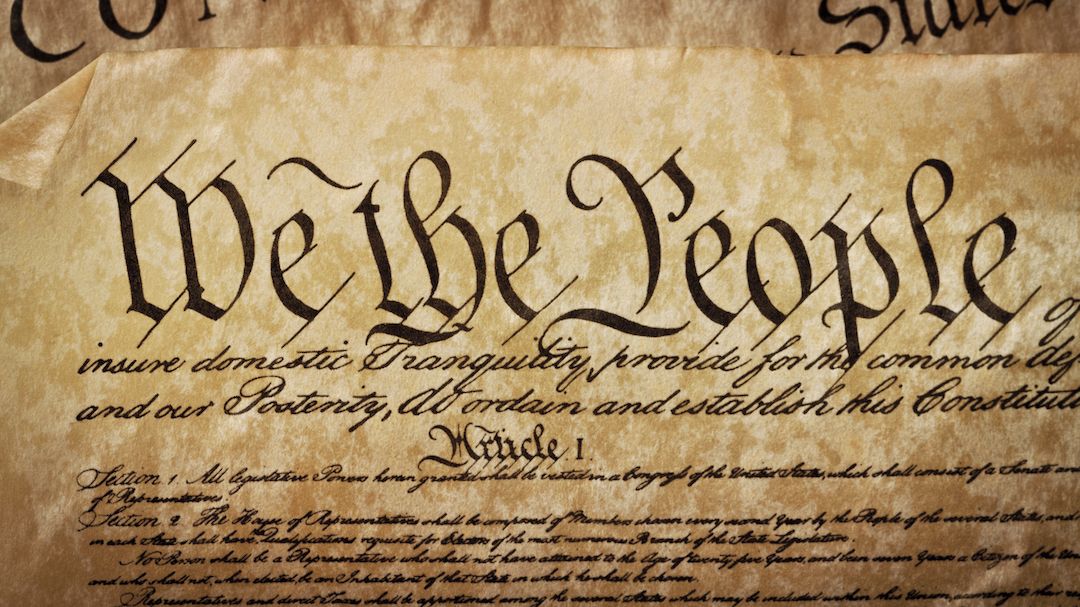 CON States
We the People of
insure domestic Tranquility, provide for the common def
and our Posterity, do ordain and establish this Constituti
Article I.
Section 1. All legislative Powers herein granted shall be vested in a Congress of the United States, which shall consist of a Senate and
of Representatives.
Section 2. The House of Representatives shall be composed of Members chosen every second Year by the People of the several States, and
in each State shall have the Qualifications requisite for Electors of the most numerous Branch of the State Legislature.
No Person shall be a Representative who shall not have attained to the Age of twenty five Years, and been seven Years a Citizen of the Un
and who shall not, when elected, be an Inhabitant of that State in which he shall be chosen.
Representatives and direct Taxes shall be apportioned among the several States which may be included within this Union, according to their re